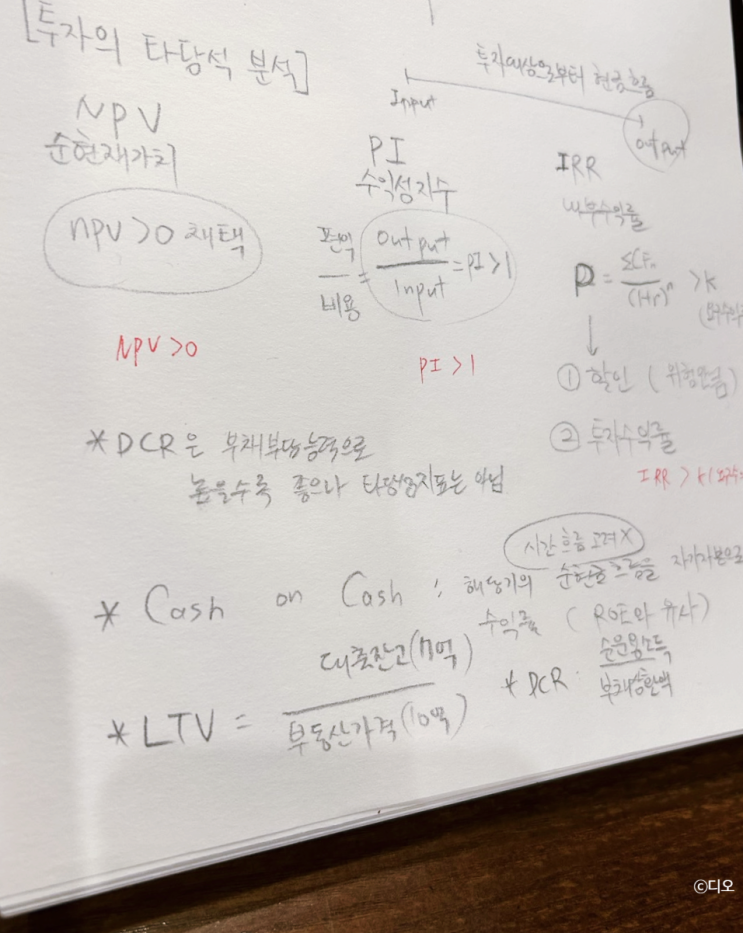 [투자의 타당석 분석]
투자대상으로부터 현금흐름
Input
output
NPV
순현재가치
NPV>0 채택
NPV>0
PI
수익성지수
편익
비용
=
output
Input
=PI>1
PI>1
IRR
내부수익률
P = ΣCFn
(1+r)^n
>k
① 할인 (위험안님)
② 투자수익률
IRR > k
*DCR은 부채부담능력으로
높을수록 좋으나 타당성지표는 아님
시간흐름고려X
* Cash on Cash : 해당기의 순현금흐름을 자기자본으로
수익률 (ROE와 유사)
*LTV =
대출잔고(7억)
부동산가격(10억)
* DCR :
순운용소득
부채상환액
©디오